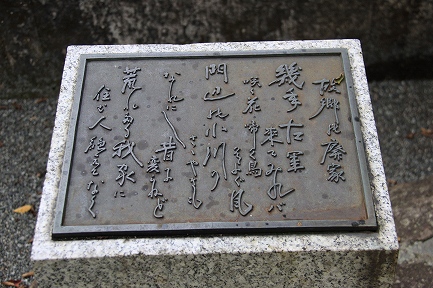 故郷の廃家
幾年古里
来てみれば
咲く花啼く鳥
そよぐ風
門辺の小川の
ささやきも
なれにし昔に
変れど
荒れたる我家に
住む人絶えてなく